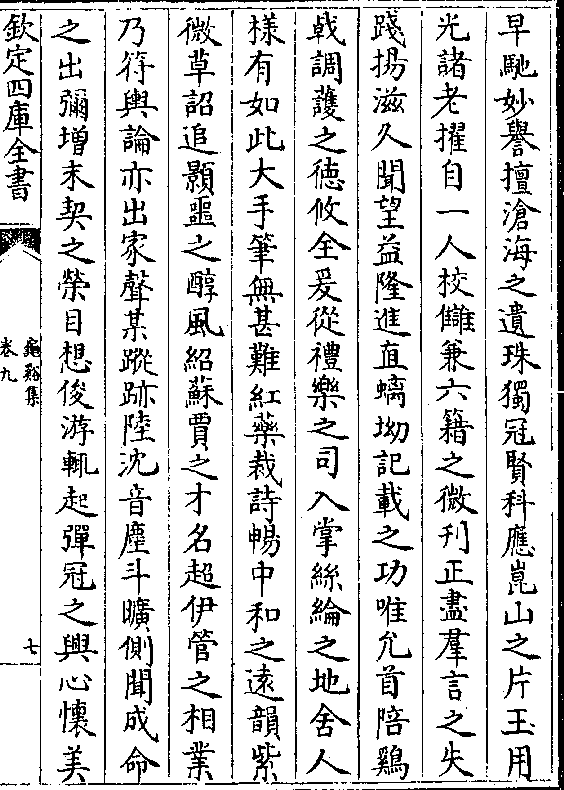 早馳妙譽擅滄海之遺珠獨冠賢科應崑山之片玉用
光諸老擢自一人校讎兼六籍之微刋正盡羣言之失
踐揚滋久聞望益隆進直螭坳記載之功唯允首陪鷄
㦸調護之徳攸全爰從禮樂之司入掌絲綸之地舍人
様有如此大手筆無甚難紅藥裁詩暢中和之遠韻紫
微草詔追顥噩之醇風紹蘇賈之才名超伊管之相業
乃符輿論亦出家聲某蹤跡陸沈音塵斗曠側聞成命
之出彌増末契之榮目想俊游輒起彈冠之興心懐美
欽定四庫全書
龜谿集
卷九
七